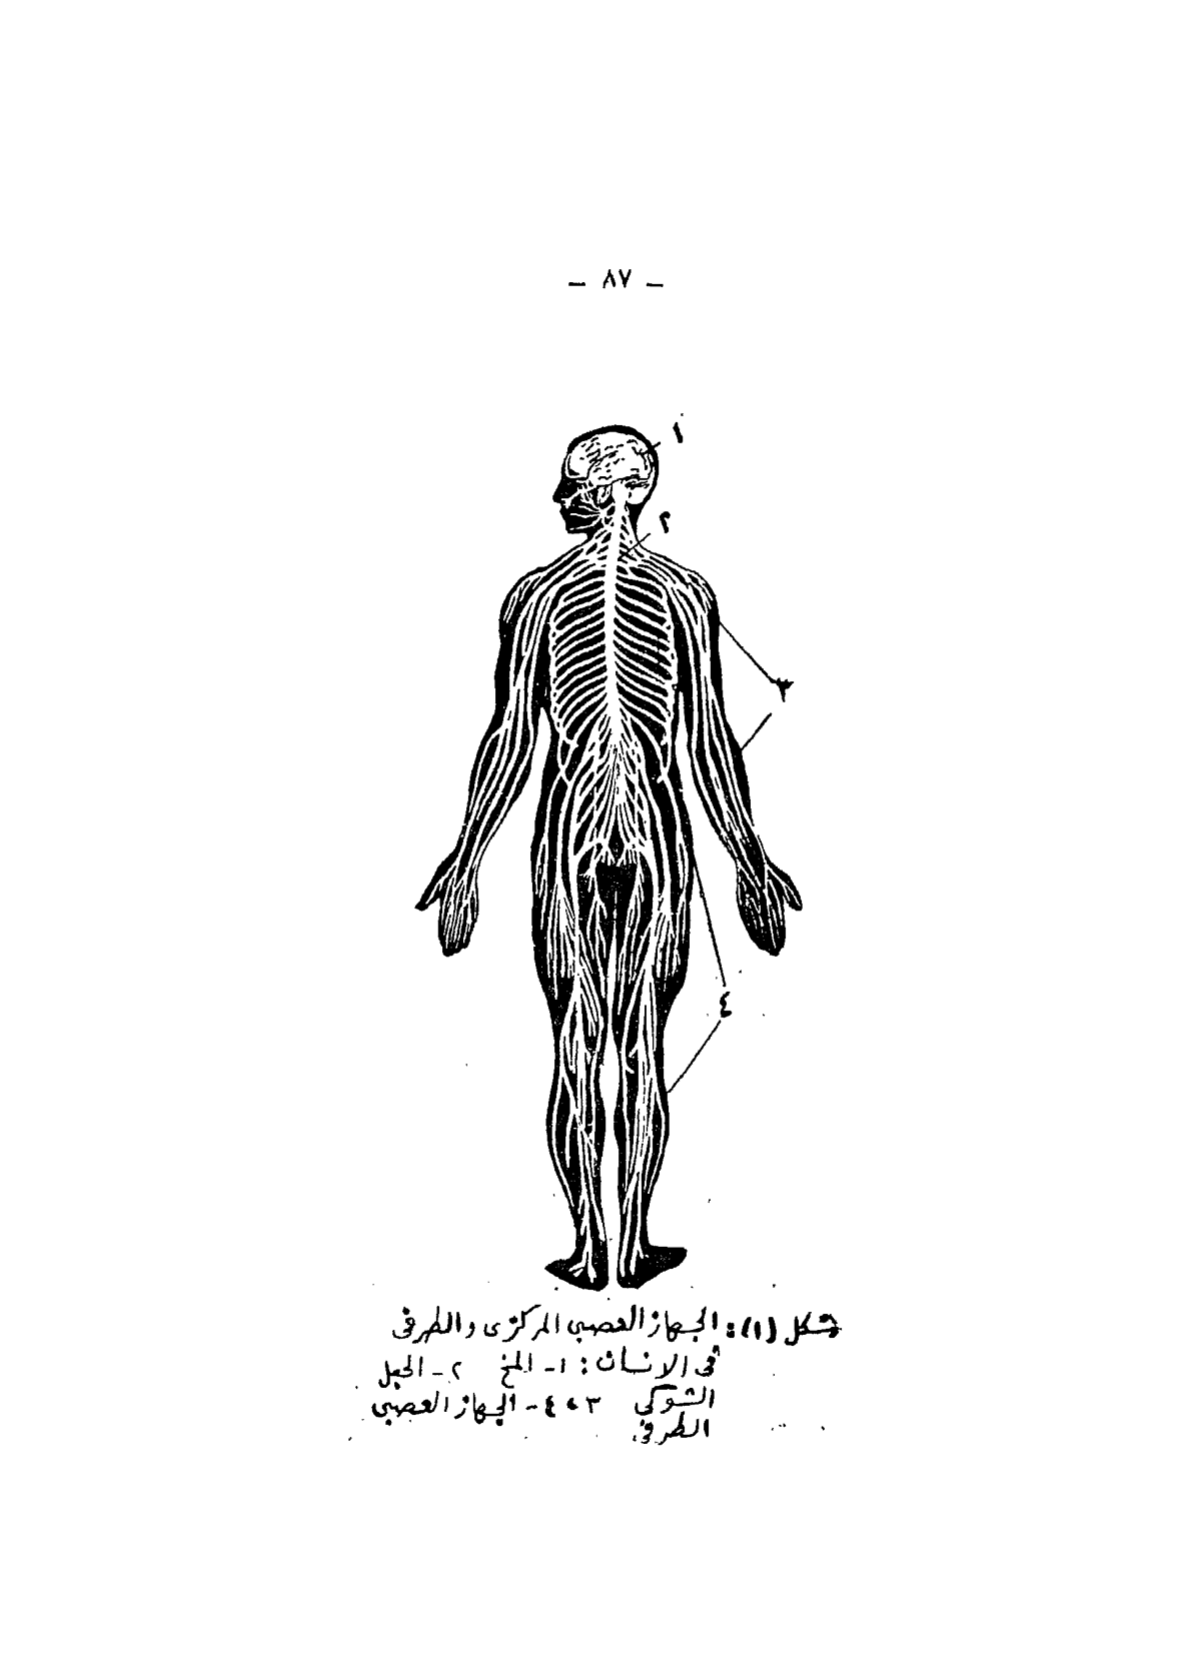 – ٨٧ –
١
٢
٣
٤
شكل (١): الجهاز العصبى المركزى والطرفى
فى الانسان: ١- المخ ٢- الحبل
الشوكى ٣ ، ٤- الجهاز العصبى
الطرفى.